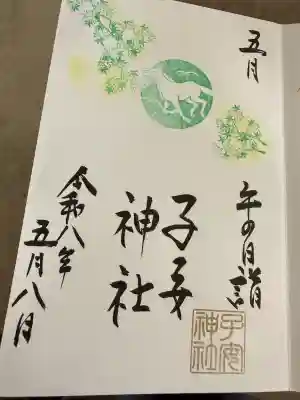 五月
午の月詣
子安
神社
子安
神社
令和八年
五月八日